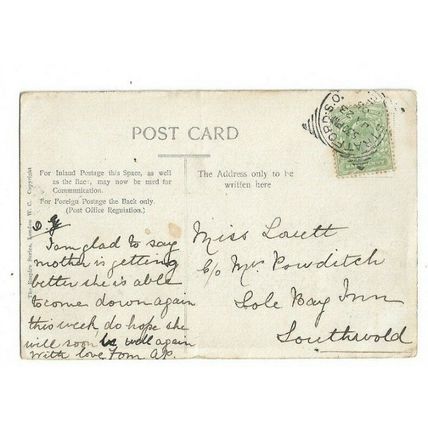 POST CARD
For Inland Postage this Space, as well
as the Back, may now be used for
Communication.
For Foreign Postage the Back only.
(Post Office Regulation.)
The Address only to be
written here
The Empire Series, London W. C. Copyright
I am glad to say
mother is getting
better she is able
to come down again
this week do hope she
will soon be well again
With love from
Miss Lovett
c/o Mr Powditch
Sole Bay Inn
Southwold